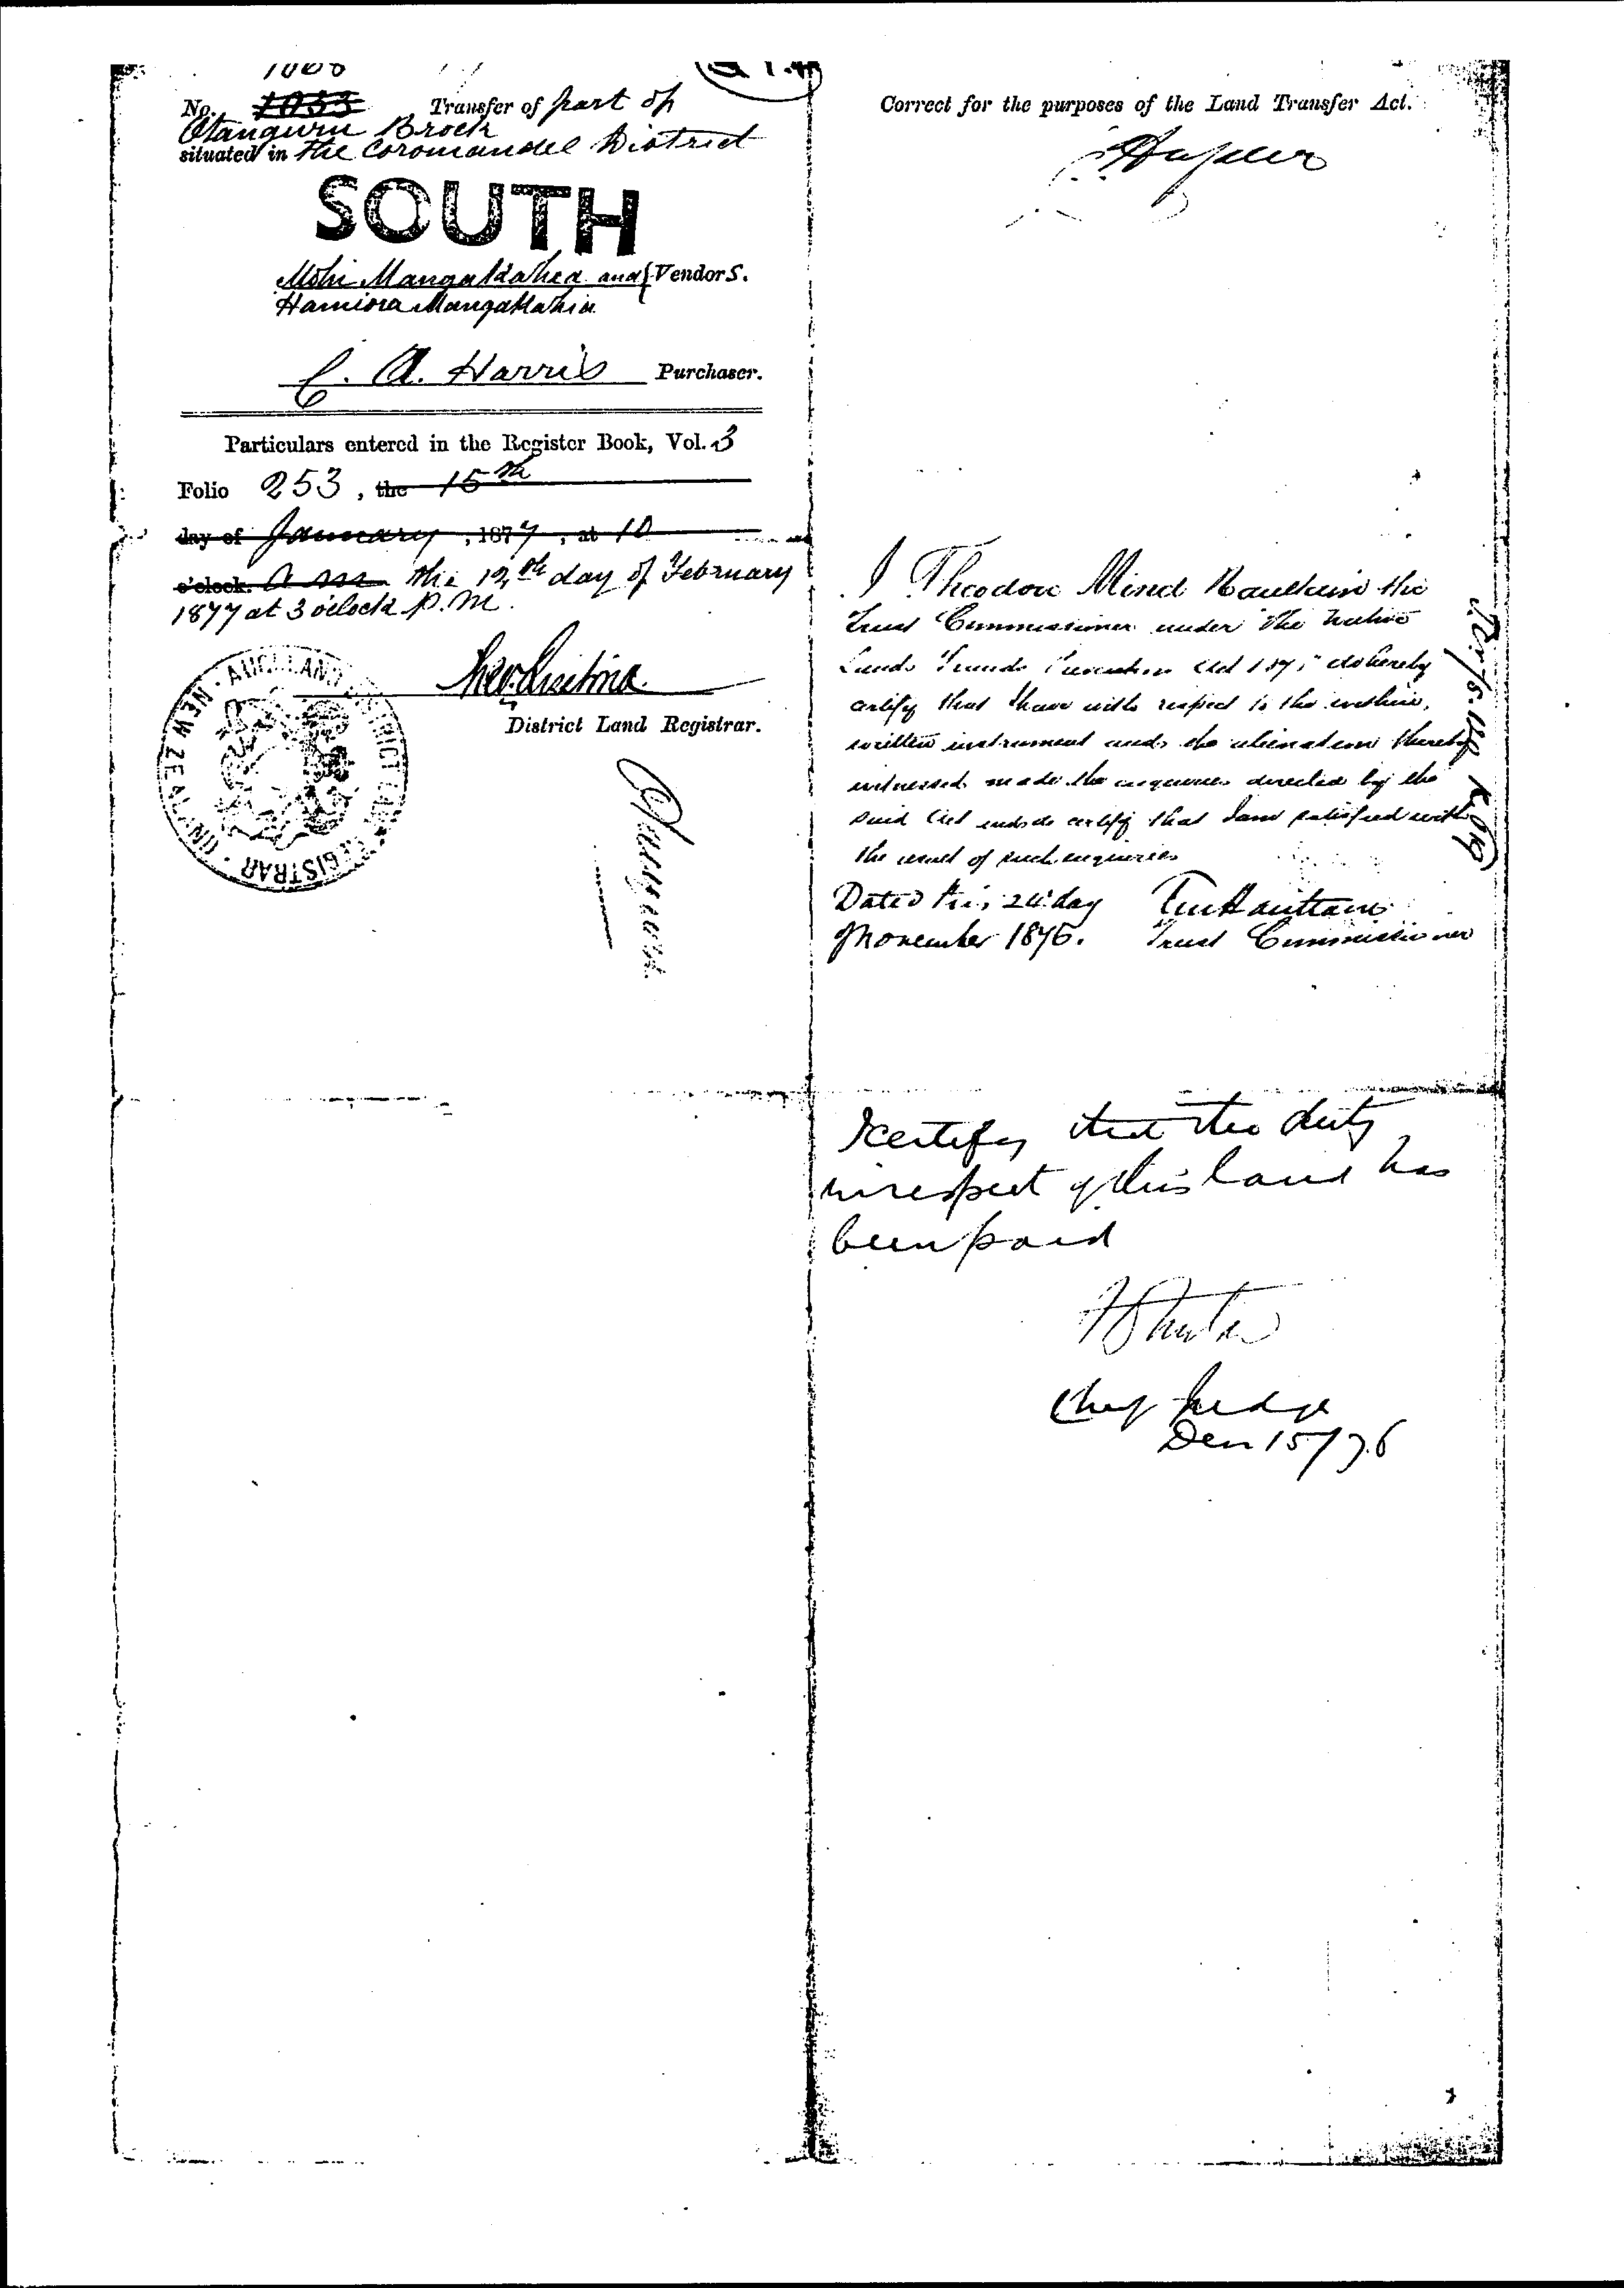 No. 1033 Transfer of part of
Otanguru Block
situated in the Coromandel District
SOUTH
Mohi Mangakahia and Vendors.
Hamiora Mangakahia
C. A. Harris Purchaser.
Particulars entered in the Register Book, Vol. 3
Folio 253, the 15th
day of January, 1877, at 10
o'clock. a m the 12th day of February
1877 at 3 o'clock p.m.
District Land Registrar.
AUCKLAND DISTRICT LAND REGISTRAR · NEW ZEALAND
Correct for the purposes of the Land Transfer Act.
I Theodore Minet Haultain the
Trust Commissioner under the Native
Lands Frauds Prevention Act 187 do hereby
certify that I have with respect to the within
written instrument and the alienation thereby
witnessed made the enquiries directed by the
said Act and do certify that I am satisfied with
the result of such enquiries
Dated this 24th day TM Haultain
November 1876. Trust Commissioner
I certify that the duty
in respect of this land has
been paid
Chief Judge
Decr 15/76